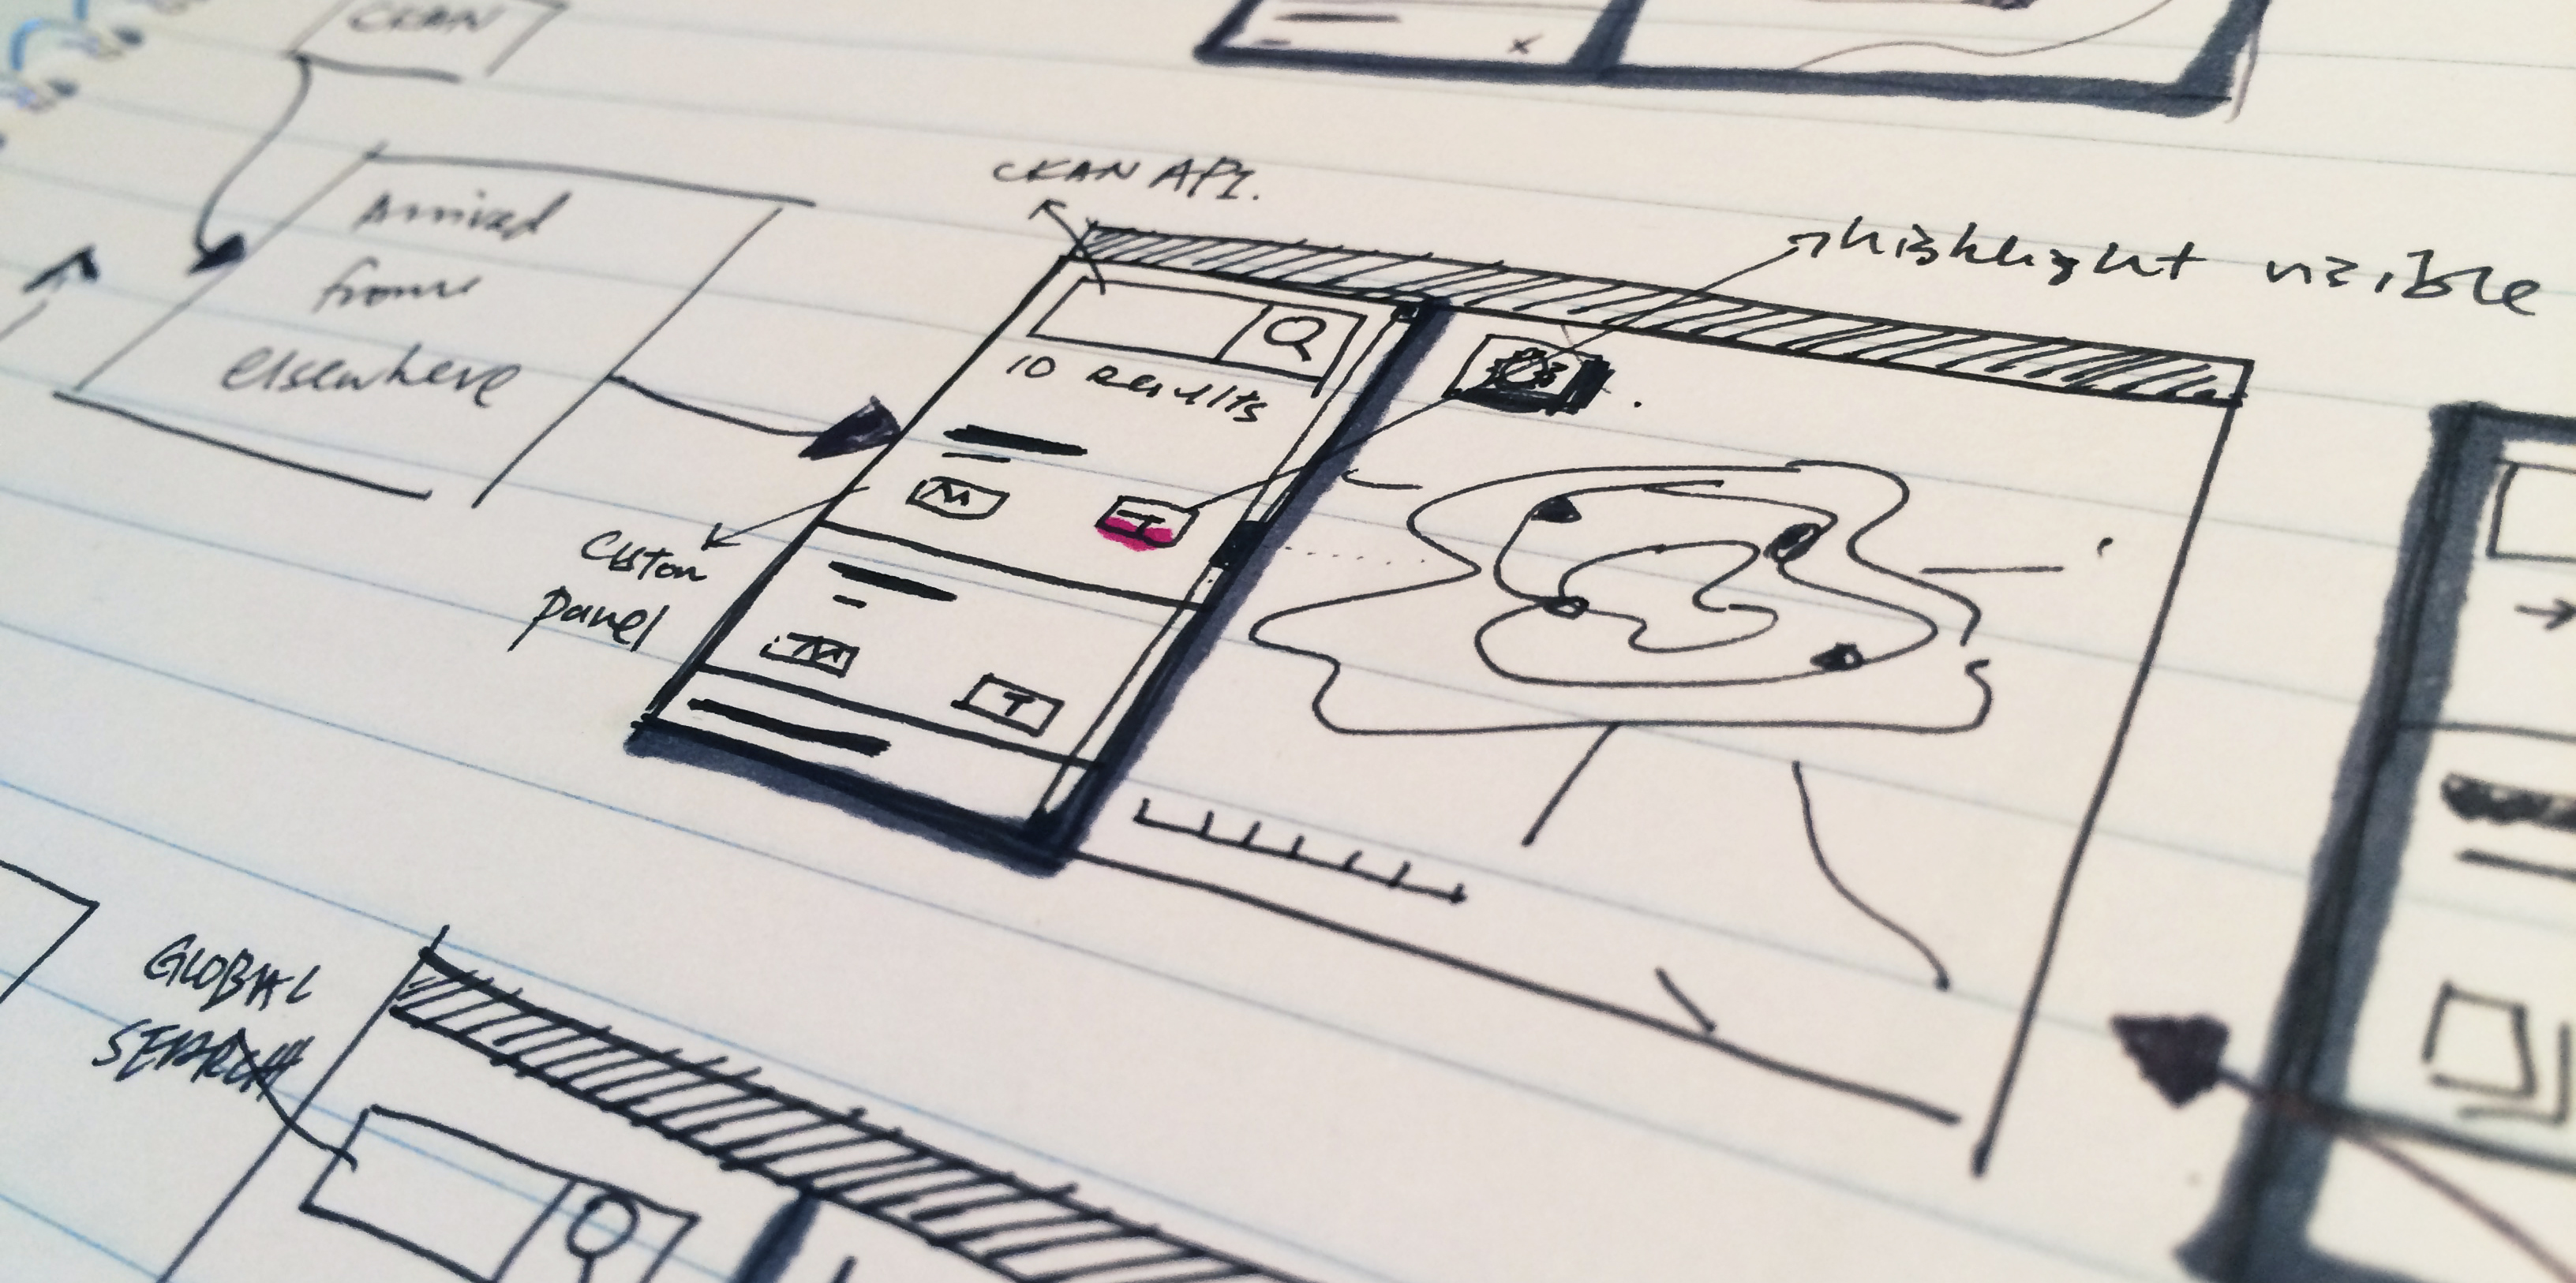 CKAN
CKAN API.
Arrived
from
elsewhere
highlight visible
10 Results
M
T
Custom
panel
M
T
GLOBAL
SEARCH